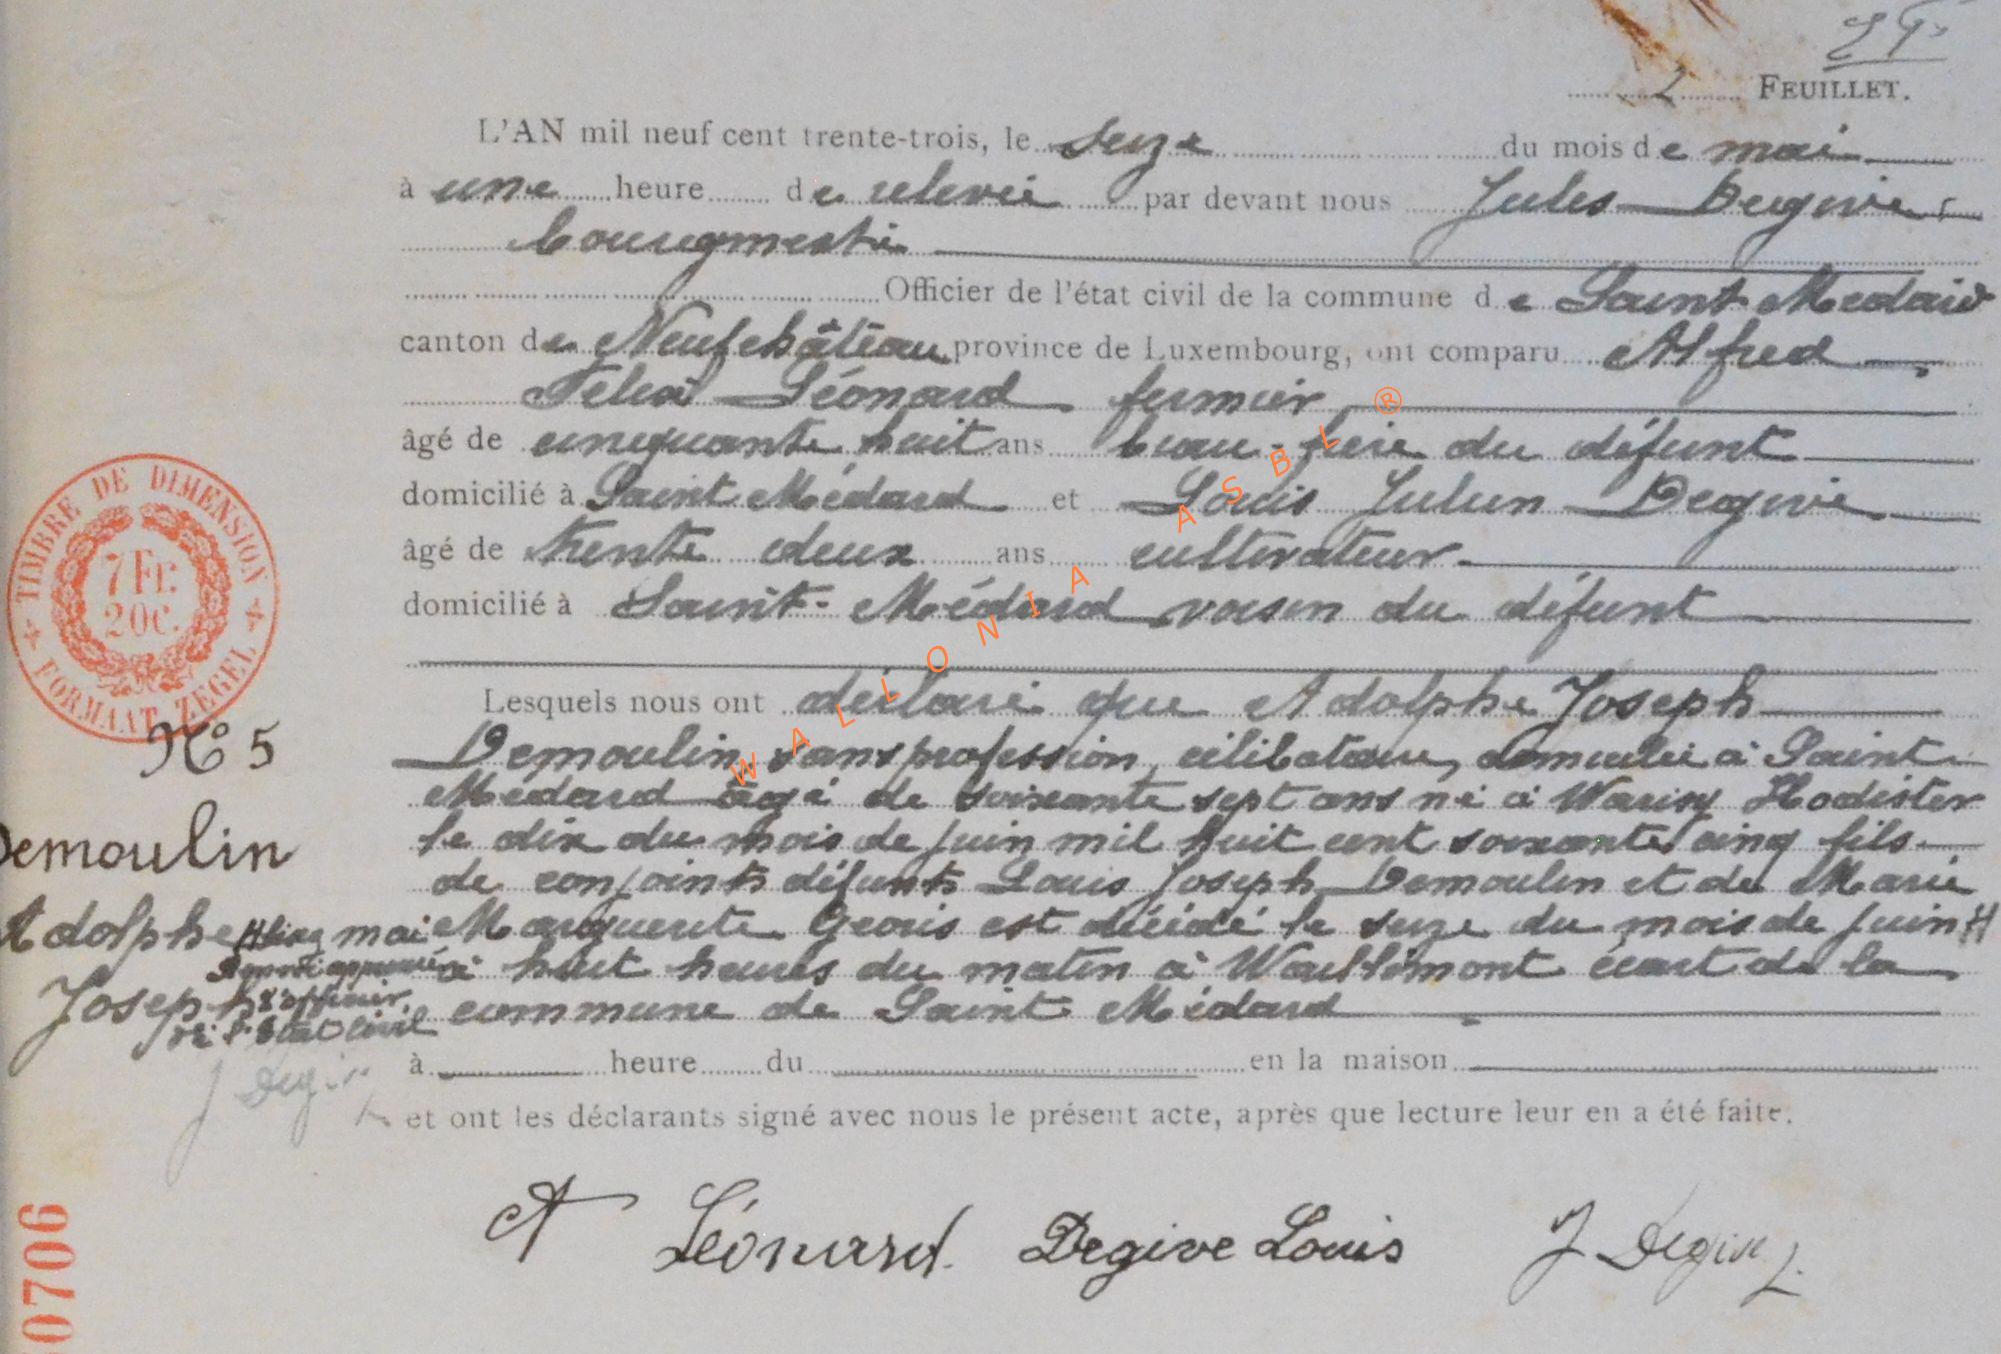 2 FEUILLET.
L'AN mil neuf cent trente-trois, le seize du mois de mai
à une heure de relevée par devant nous Jules Degive,
bourgmestre
Officier de l'état civil de la commune de Saint Médard
canton de Neufchâteau province de Luxembourg, ont comparu Alfred
Félix Léonard fermier
âgé de cinquante huit ans beau-frère du défunt
domicilié à Saint Médard et Louis Julien Degive
âgé de trente deux ans cultivateur
domicilié à Saint-Médard voisin du défunt
Lesquels nous ont déclaré que Adolphe Joseph
Demoulin, sans profession, célibataire, domicilié à Saint
Médard âgé de soixante sept ans né à Warisy Hodister
le dix du mois de juin mil huit cent soixante cinq fils
de conjoints défunts Louis Joseph Demoulin et de Marie
Marguerite Georis est décédé le seize du mois de juin H
à huit heures du matin à Waillimont écart de la
commune de Saint Médard
à heure du en la maison
et ont les déclarants signé avec nous le présent acte, après que lecture leur en a été faite.
A Léonard. Degive Louis J Degive
TIMBRE DE DIMENSION
7 Fr.
20c.
FORMAAT ZEGEL
N° 5
Demoulin
Adolphe
Joseph
H mai
Renvoi approuvé
l'officier
de l'Etat civil
J Degive
0706
WALLONIA ASBL ®